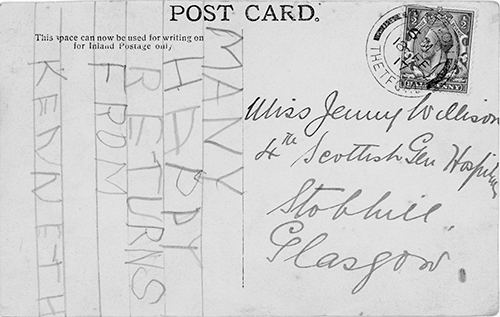 POST CARD.
This space can now be used for writing on
for Inland Postage only
MANY
HAPPY
RETURNS
FROM
KENNETH
Miss Jenny Willison
4th Scottish Gen Hospital
Stobhill
Glasgow
THETF
HALFPENNY